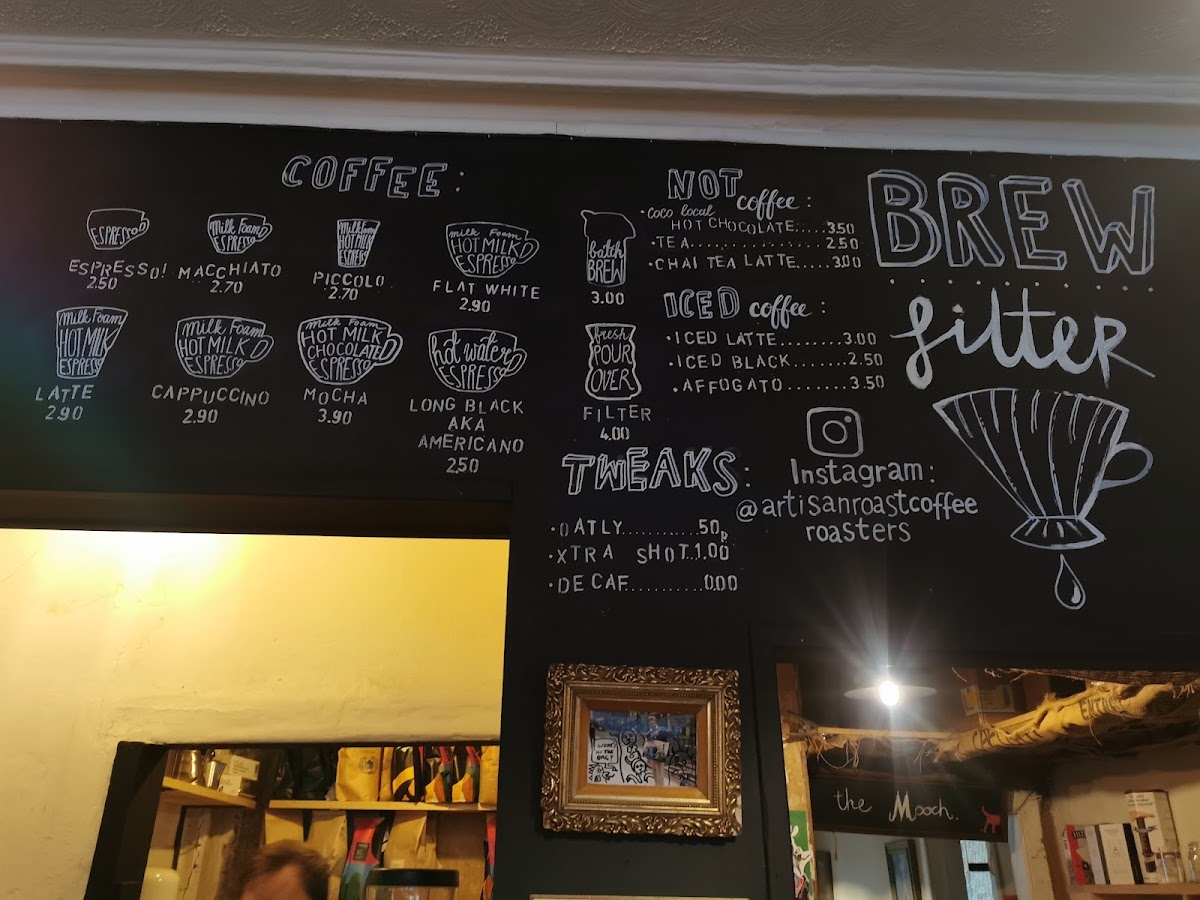 COFFEE:
ESPRESSO
ESPRESSO!
2.50
Milk Foam
ESPRESSO
MACCHIATO
2.70
Milk Foam
HOT MILK
ESPRESSO
PICCOLO
2.70
Milk Foam
HOT MILK
ESPRESSO
FLAT WHITE
2.90
Milk Foam
HOT MILK
ESPRESSO
LATTE
2.90
Milk Foam
HOT MILK
ESPRESSO
CAPPUCCINO
2.90
Milk Foam
HOT MILK
CHOCOLATE
ESPRESSO
MOCHA
3.90
hot water
ESPRESSO
LONG BLACK
AKA
AMERICANO
2.50
batch
BREW
3.00
fresh
POUR
OVER
FILTER
4.00
NOT coffee:
·coco local
HOT CHOCOLATE.....3.50
·TEA................2.50
·CHAI TEA LATTE.....3.00
ICED coffee:
·ICED LATTE.........3.00
·ICED BLACK.......2.50
·AFFOGATO.......3.50
TWEAKS:
·OATLY..........50p
·XTRA SHOT..1.00
·DECAF..........0.00
BREW
filter
Instagram:
@artisanroastcoffee
roasters
the Mooch.